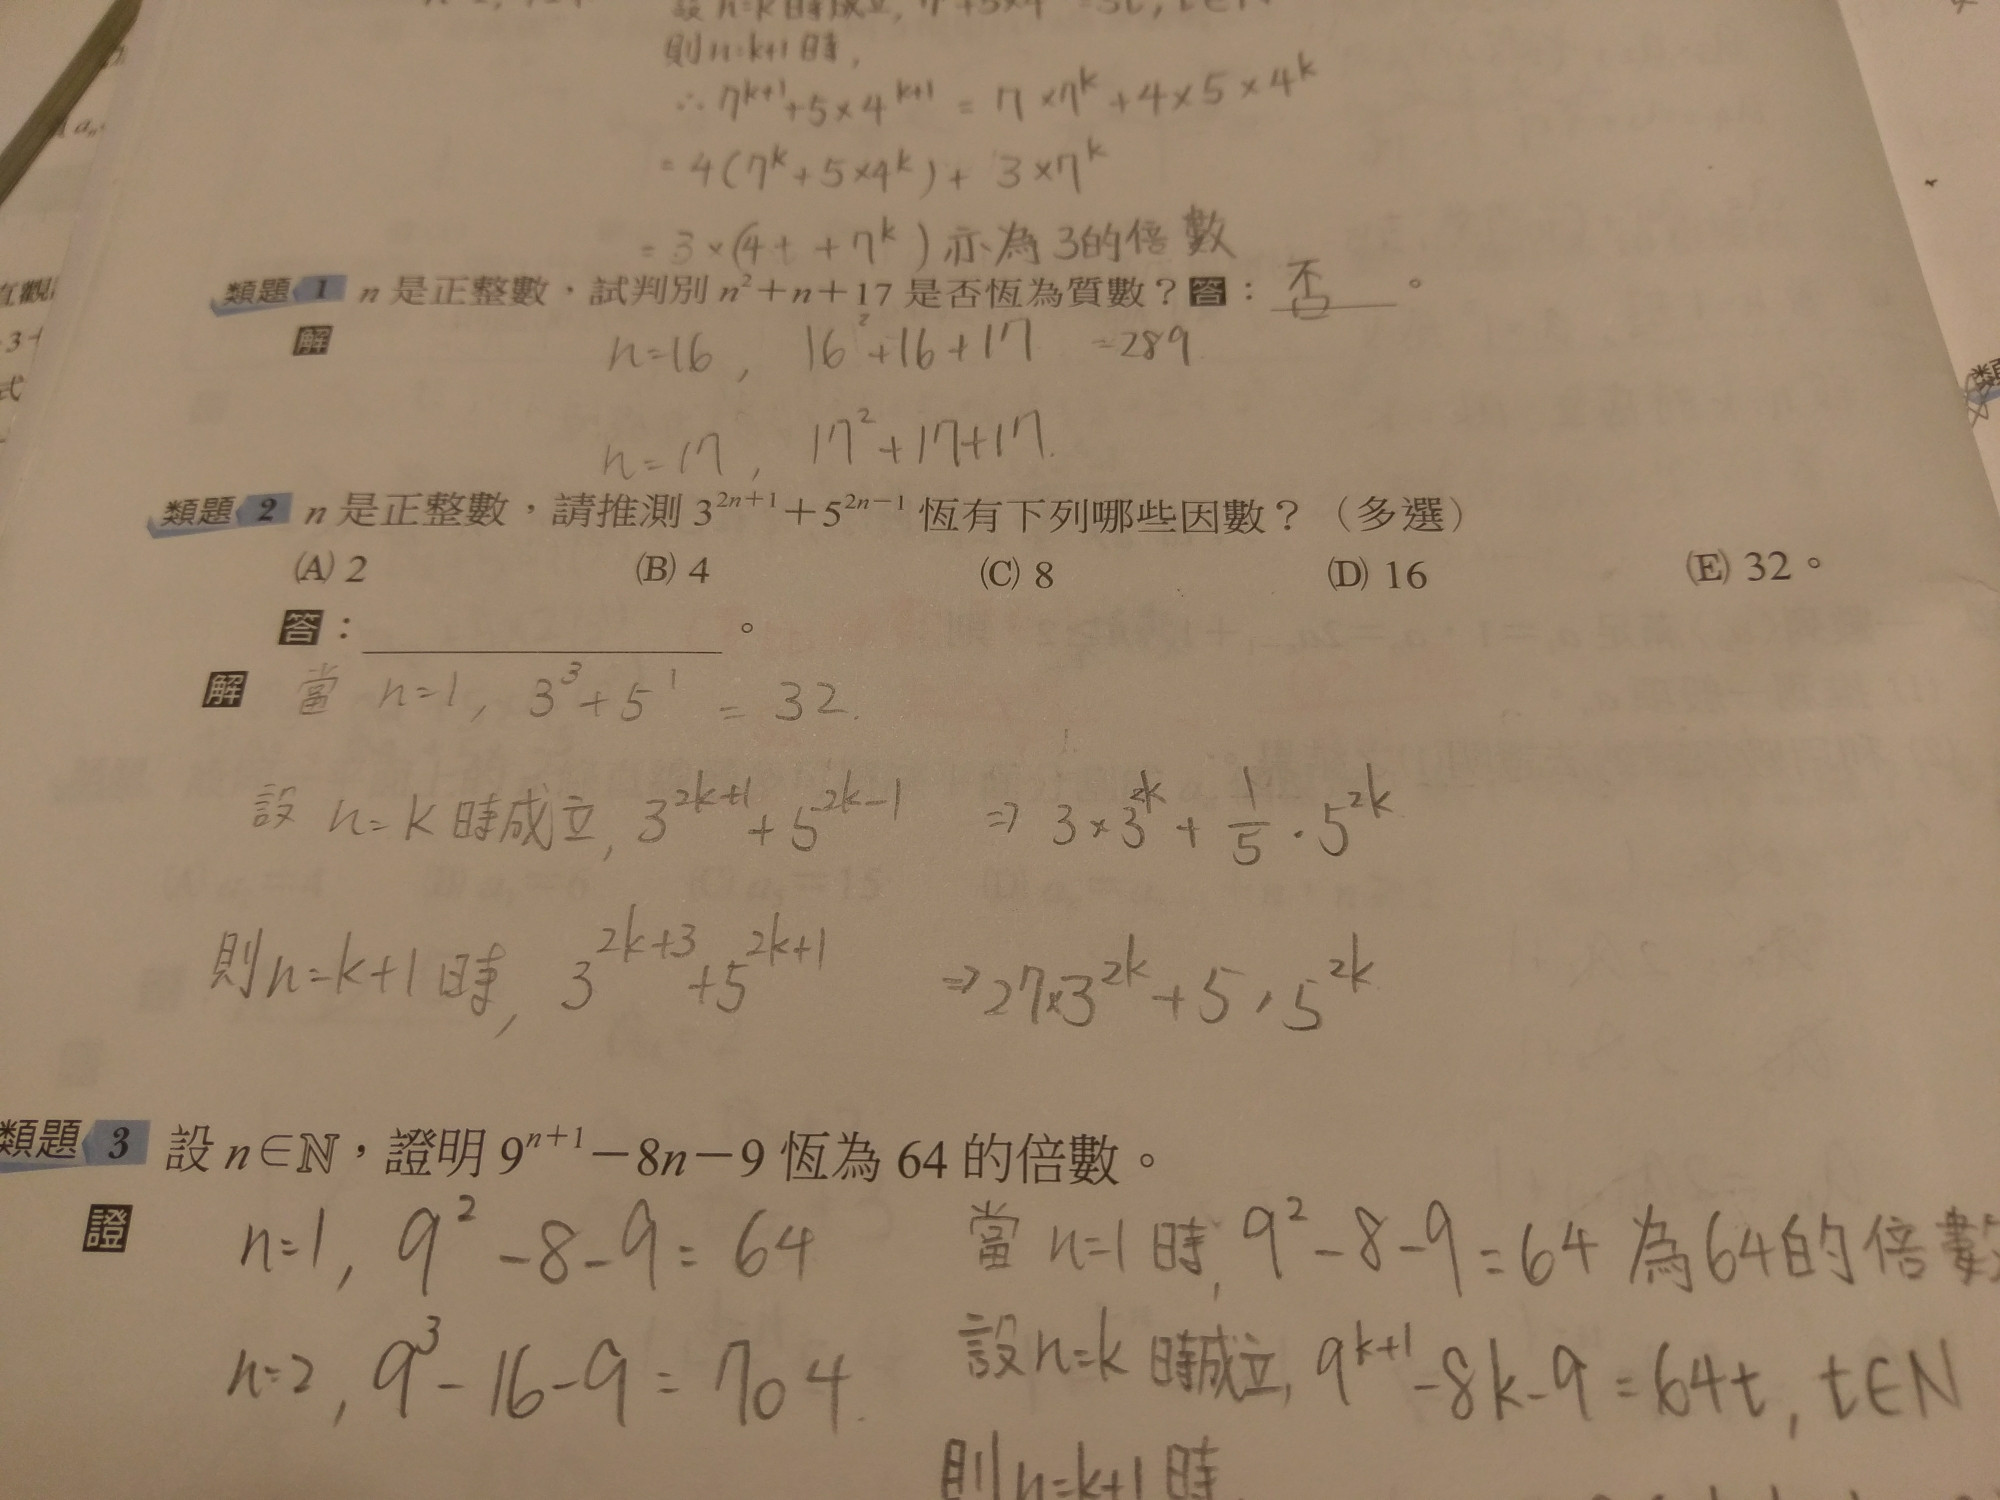 設 n=k 時成立, 7 +5×4 =3t, t∈N
則 n=k+1 時,
∴ 7^{k+1}+5×4^{k+1} = 7×7^k+4×5×4^k
=4(7^k+5×4^k)+ 3×7^k
=3×(4t+7^k) 亦為3的倍數
類題 1 n 是正整數,試判別 n²+n+17 是否恆為質數?答: 否 。
解 n=16, 16²+16+17 =289
n=17, 17²+17+17.
類題 2 n 是正整數,請推測 3^{2n+1}+5^{2n−1} 恆有下列哪些因數?(多選)
(A) 2 (B) 4 (C) 8 (D) 16 (E) 32。
答: 。
解 當 n=1, 3³+5¹ = 32.
設 n=k 時成立, 3^{2k+1}+5^{2k-1} ⇒ 3×3^{2k}+1/5·5^{2k}
則n=k+1時, 3^{2k+3}+5^{2k+1} ⇒27×3^{2k}+5·5^{2k}
類題 3 設 n∈ℕ,證明 9^{n+1}−8n−9 恆為 64 的倍數。
證 n=1, 9²-8-9=64 當 n=1 時, 9²-8-9=64 為64的倍數
n=2, 9³-16-9=704. 設n=k 時成立, 9^{k+1}-8k-9=64t, t∈N
則n=k+1時